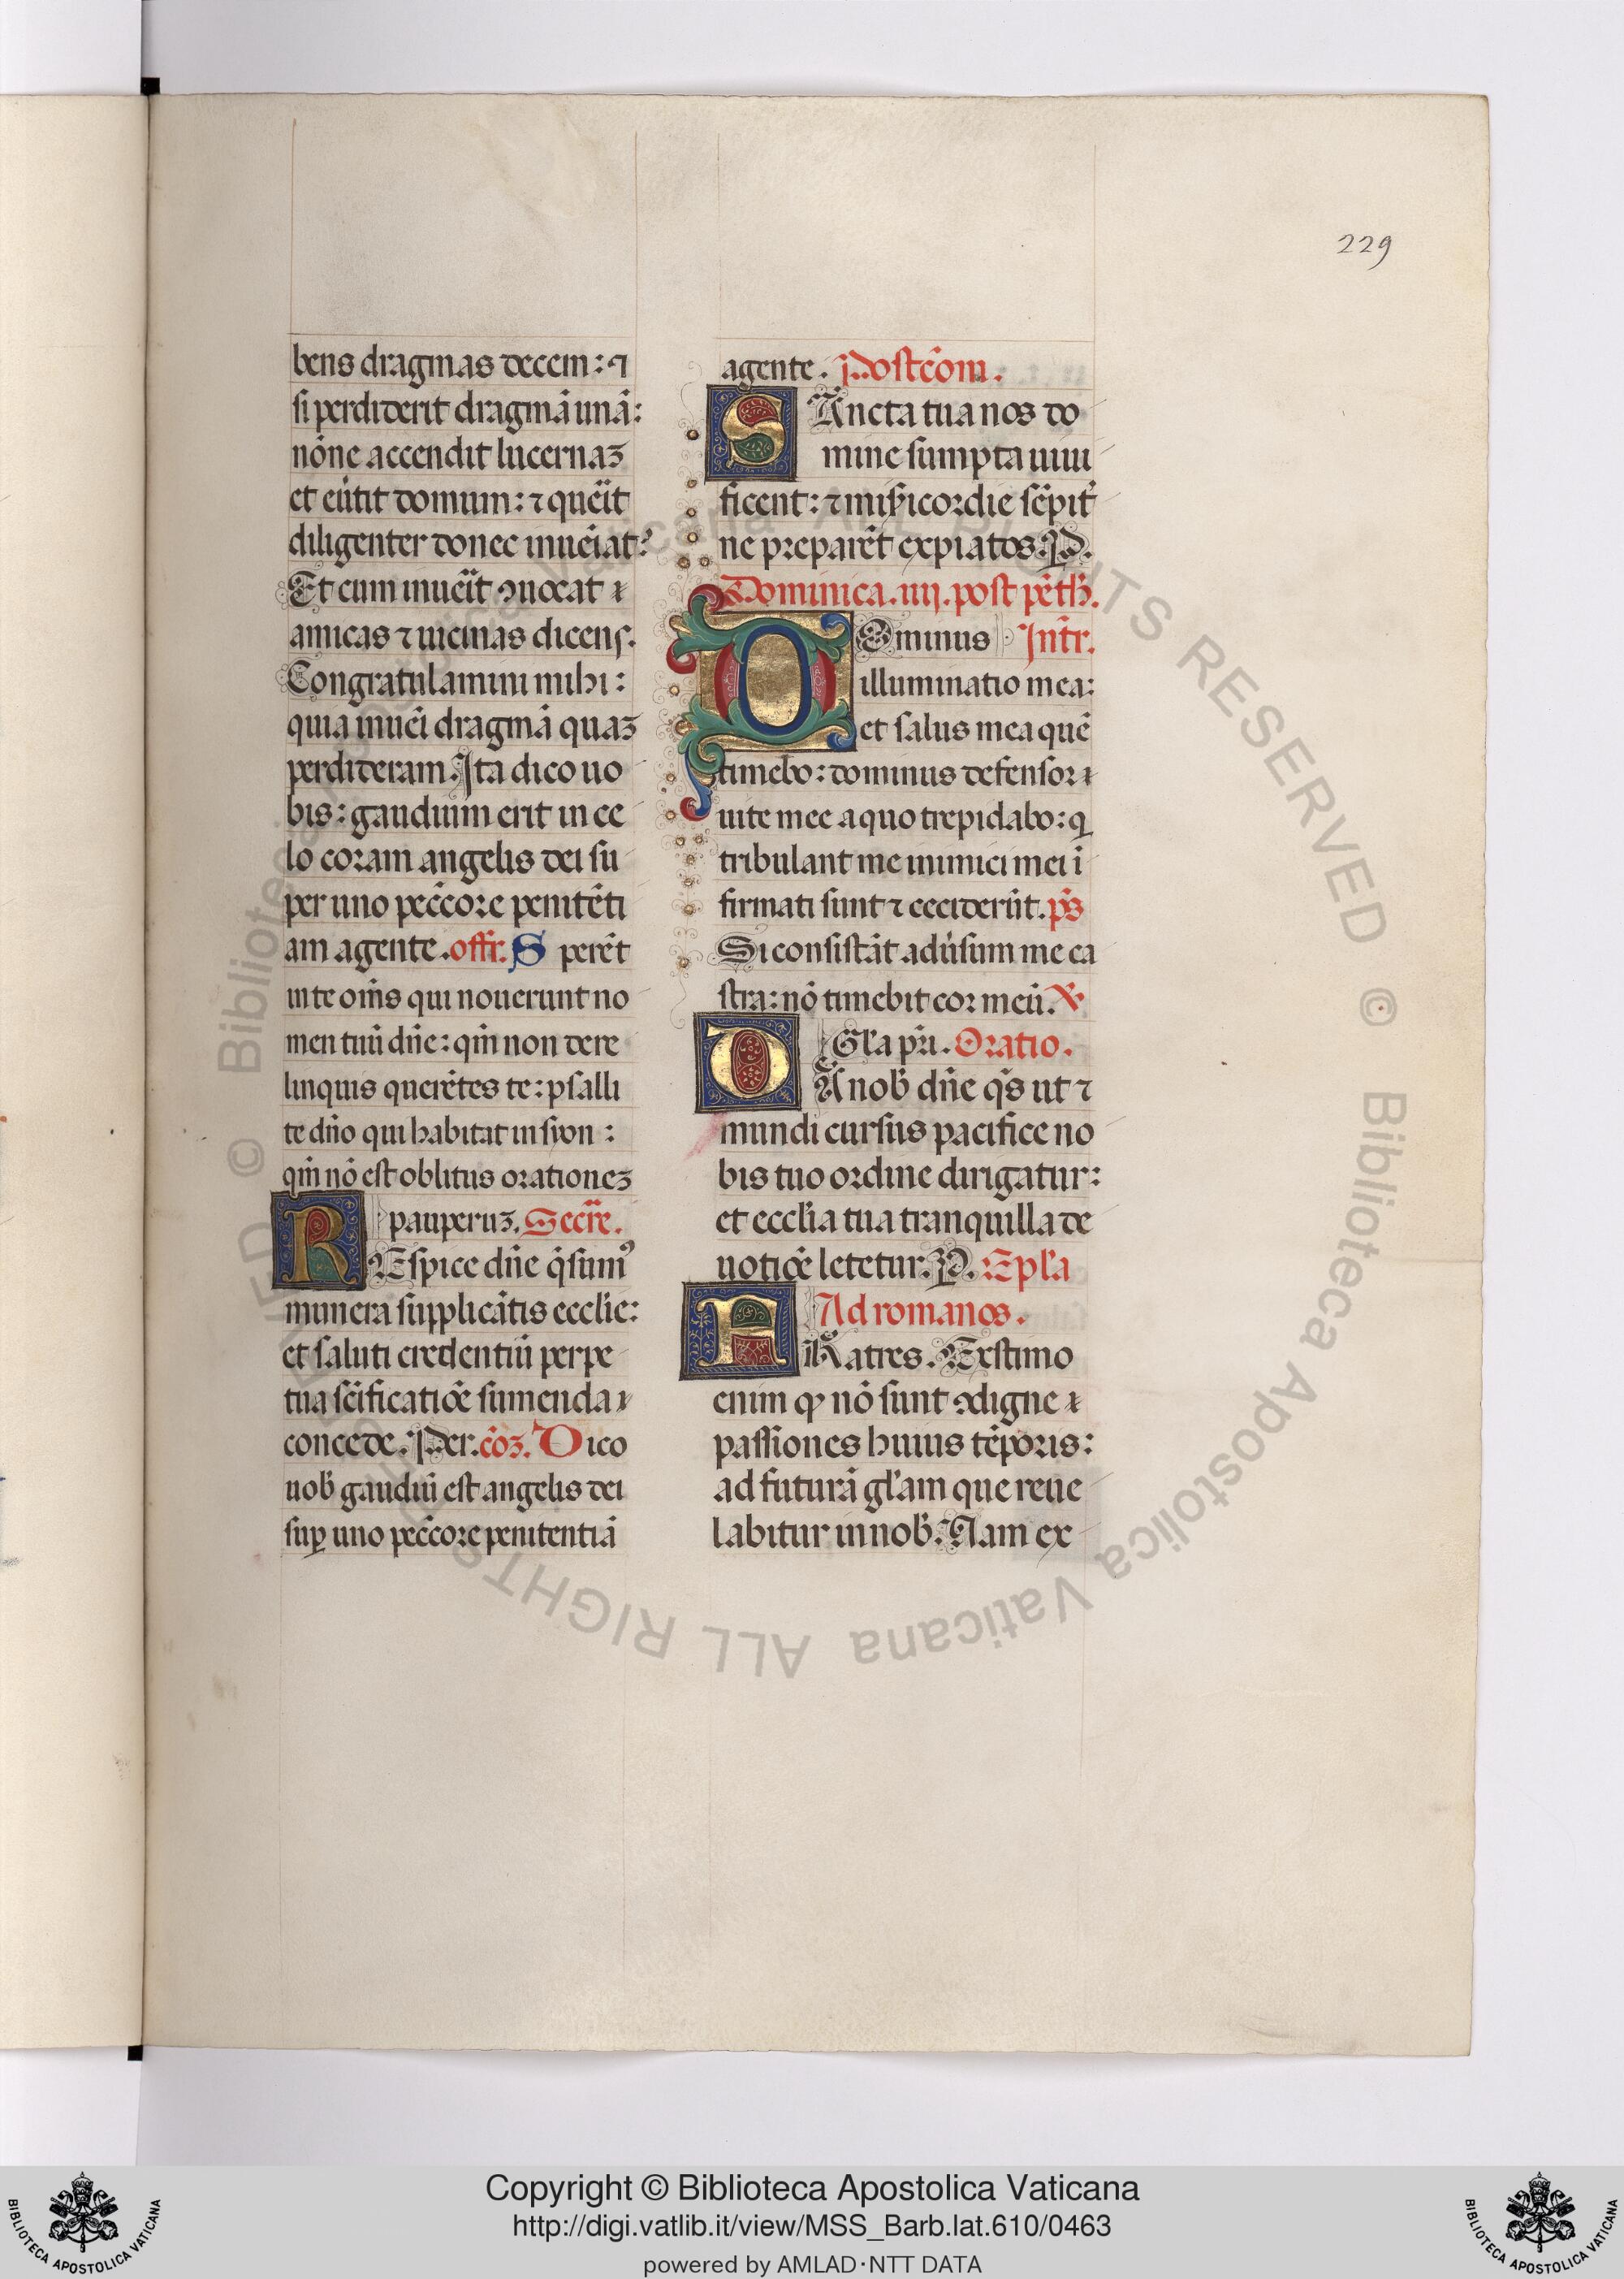 229
bens dragmas decem: ⁊
si perdiderit dragmā unā:
nōne accendit lucernaꝫ
et eūtit domum: ⁊ querit
diligenter donec inueiat:
Et cum inuerit ꝯuocat
amicas ⁊ uicinas dicens.
Congratulamini mihi:
quia inueī dragmā quaꝫ
perdideram. Ita dico uo
bis: gaudium erit in ce
lo coram angelis dei su
per uno peccōre penitēti
am agente. offr. S perēt
in te oms qui nouerunt no
men tuū dn̄e: qm̄ non dere
linquis querētes te: psalli
te dn̄o qui habitat in syon:
qm̄ nō est oblitus orationeꝫ
pauperuꝫ. Secre.
REspice dn̄e q̄sumꝰ
munera supplicātis ecclie:
et saluti credentiū perpe
tua scīficatiōe sumenda
concede. Per. cōꝫ. Dico
uob̄ gaudiū est angelis dei
suꝑ uno peccōre penitentiā
agente. Postcōm.
SAncta tua nos do
mine sumpta uiui
ficent: ⁊ misīcordie sēpit
ne preparēt expiatos. P.
Dominica. iiij. post pēth.
DOminus Intr.
illuminatio mea:
et salus mea quē
timebo: dominus defensor
uite mee a quo trepidabo: q
tribulant me inimici mei ī
firmati sunt ⁊ ceciderūt. ps
Si consistāt aduersum me ca
stra: nō timebit cor meū. V
Gl'a pri. Oratio.
DA nob̄ dn̄e qs ut ⁊
mundi cursus pacifice no
bis tuo ordine dirigatur:
et ecclia tua tranquilla de
uotiōe letetur. P. Epl'a
Ad romanos.
FRatres. Exstimo
enim ꝙ nō sunt ꝯdigne
passiones huius tēporis:
ad futurā gl'am que reue
labitur in nob̄. Nam ex
© Biblioteca Apostolica Vaticana ALL RIGHTS RESERVED © Biblioteca Apostolica Vaticana ALL RIGHTS RESERVED
Copyright © Biblioteca Apostolica Vaticana
http://digi.vatlib.it/view/MSS_Barb.lat.610/0463
powered by AMLAD·NTT DATA
BIBLIOTECA APOSTOLICA VATICANA
BIBLIOTECA APOSTOLICA VATICANA